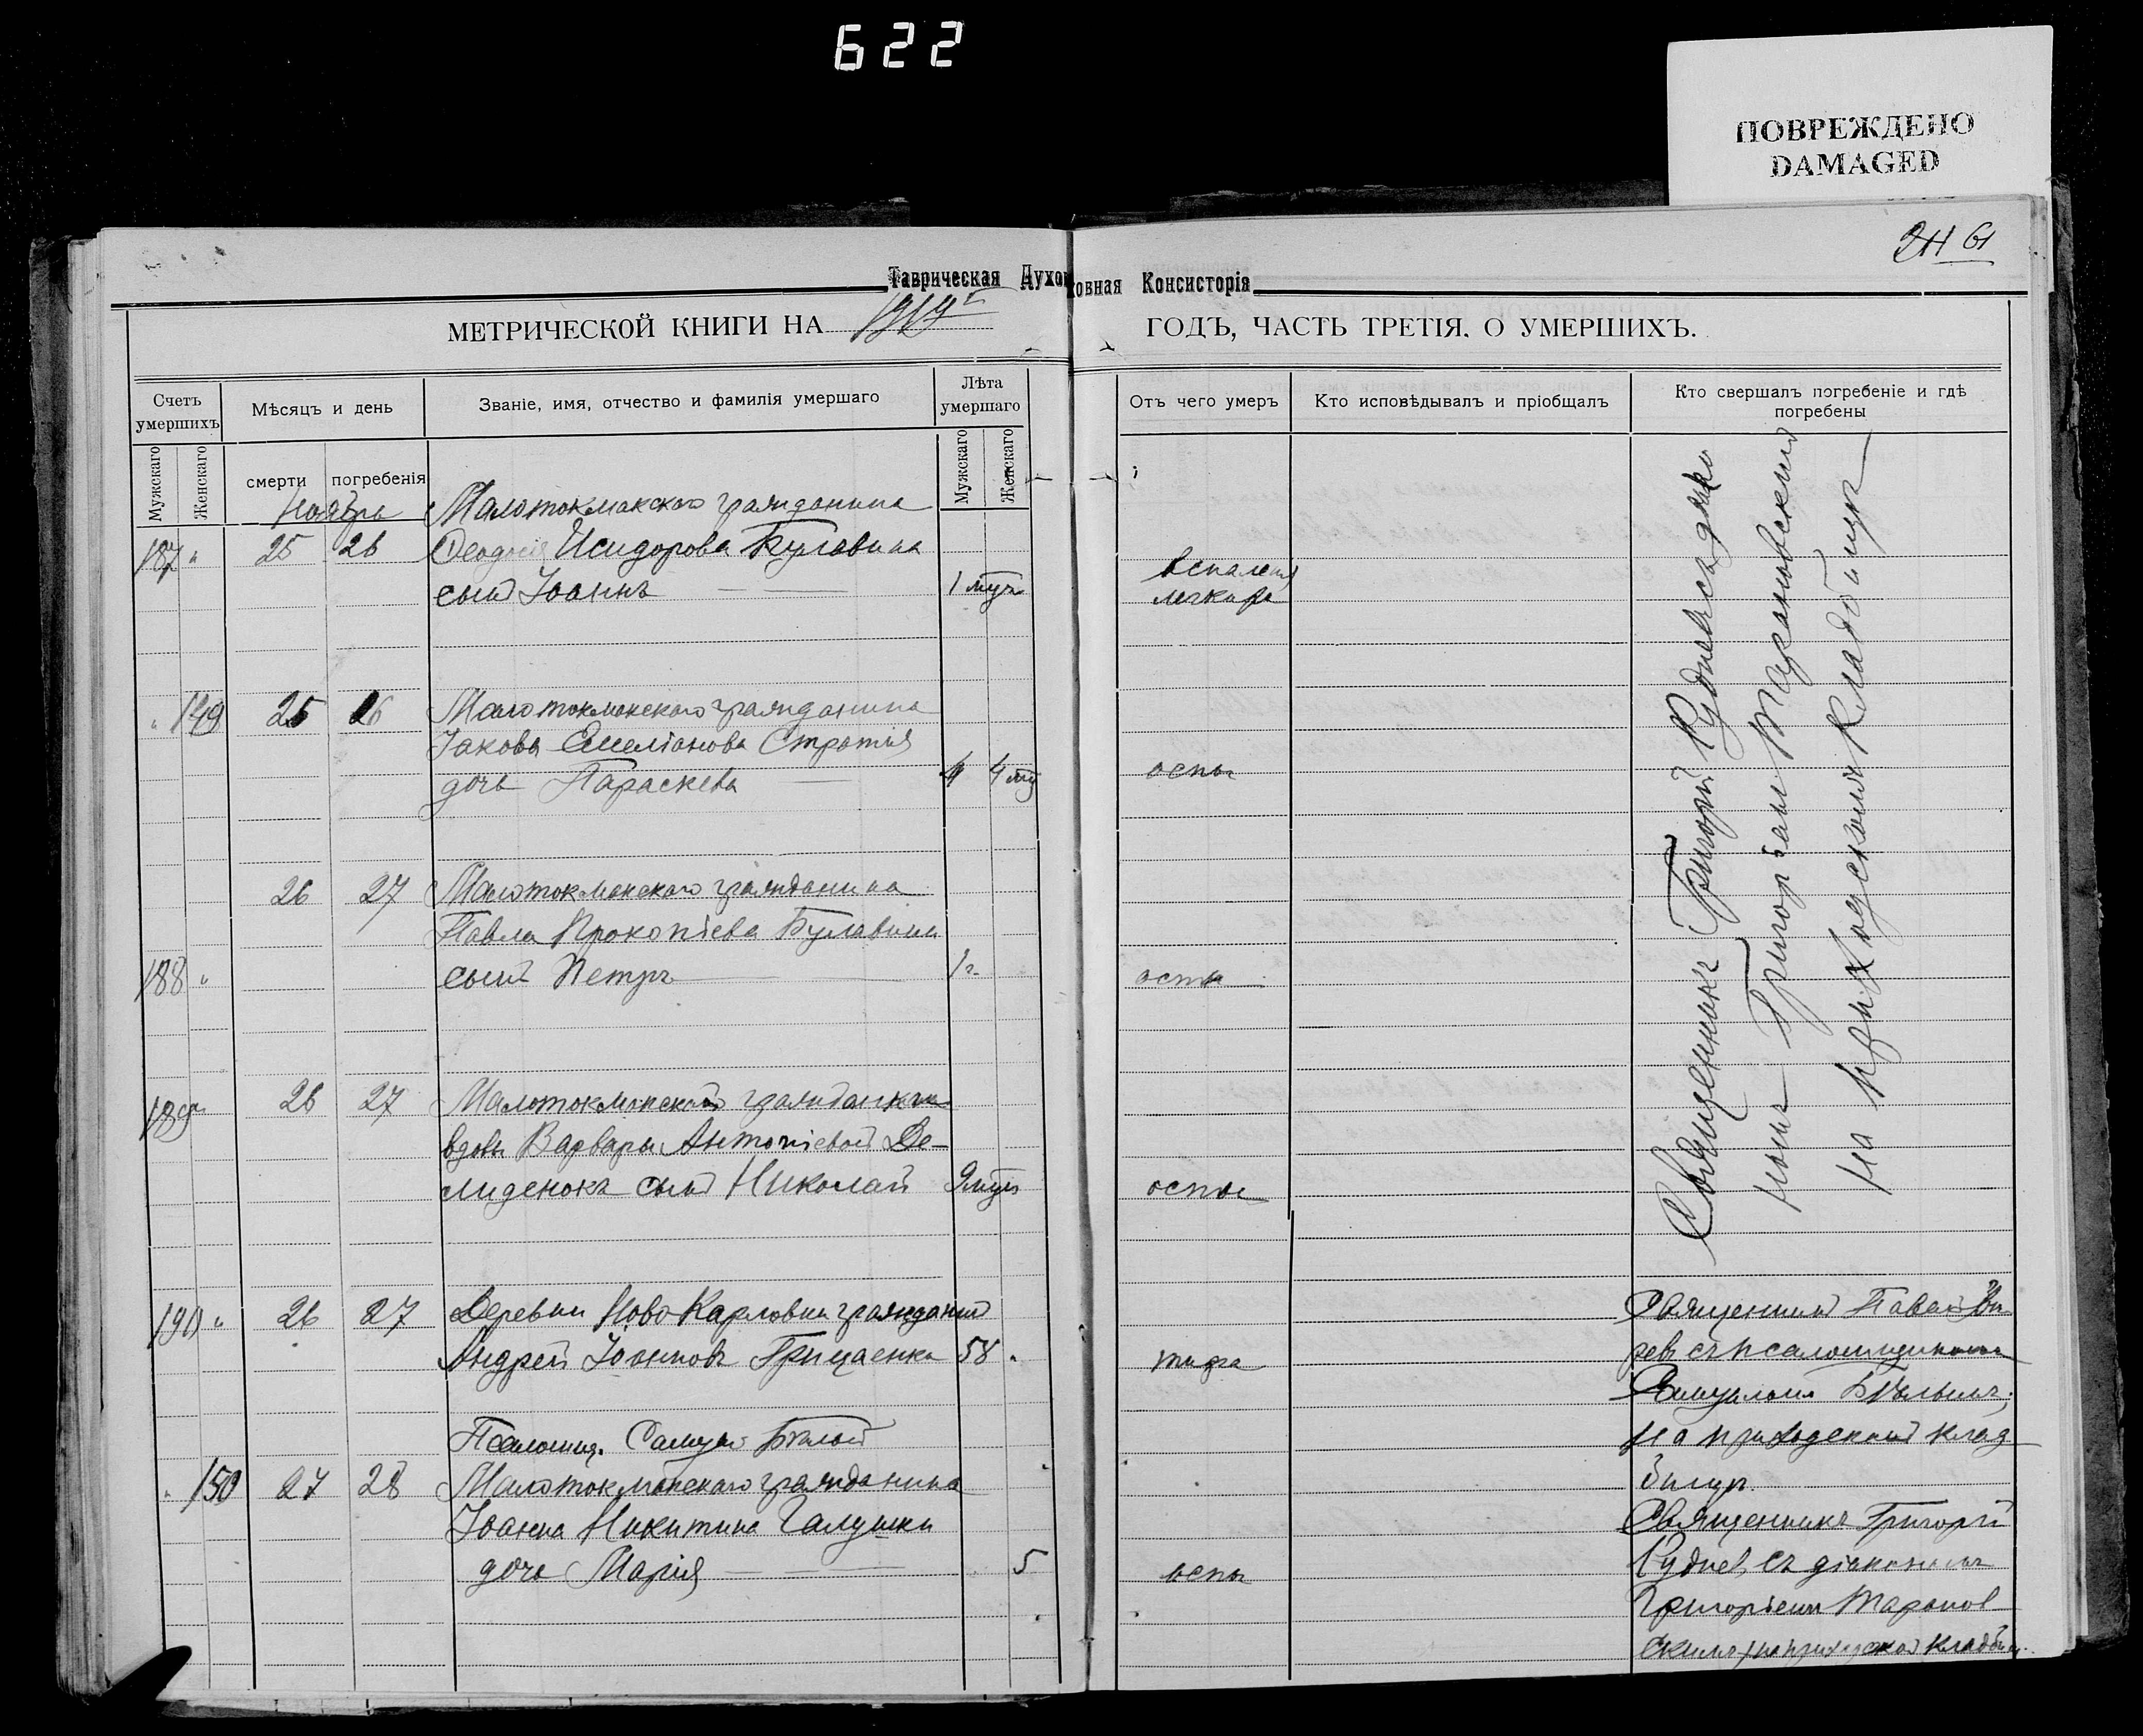 622
ПОВРЕЖДЕНО
DAMAGED
61
Таврическая Духов
овная Консисторія
МЕТРИЧЕСКОЙ КНИГИ НА 1919 г
ГОДЪ, ЧАСТЬ ТРЕТІЯ. О УМЕРШИХЪ.
Счетъ умершихъ
Мѣсяцъ и день
Званіе, имя, отчество и фамилія умершаго
Лѣта умершаго
Отъ чего умеръ
Кто исповѣдывалъ и пріобщалъ
Кто свершалъ погребеніе и гдѣ погребены
Мужскаго
Женскаго
смерти
погребенія
Мужскаго
Женскаго
Ноябрь
Малотокмакскаго гражданина
187 " 25 26 Феодосія Исидорова Булавина
сынъ Іоаннъ 1 мѣс
воспаленія
легкихъ
" 149 25 26 Малотокмакскаго гражданина
Іакова Емеліанова
дочь Параскева 4
оспы
26 27 Малотокмакскаго гражданина
Павла Прокопіева Булавина
188 " сынъ Петръ 1 г.
оспы
189 " 26 27 Малотокмакской гражданки
вдовы Варвары Антоніевой Де-
лиденокъ сынъ Николай 9
оспы
Священникъ Григорій Руднев съ діако
номъ Григоріемъ Тарановскимъ
на приходскомъ кладбищѣ
190 " 26 27 Деревни Ново Карловки гражданинъ
Андрей Іоанновъ Грищенко 58 "
тифа
Священникъ Павелъ
ревъ съ псаломщикомъ
Самуиломъ Бѣлымъ,
на приходскомъ клад
бищѣ.
Псаломщ. Самуилъ Бѣлый
" 150 27 28 Малотокмакскаго гражданина
Іоанна Никитина Галушки
дочь Марія 5
оспы
Священникъ Григорій
Руднев съ діакономъ
Григоріемъ Таранов
скимъ на приходском кладбищ.